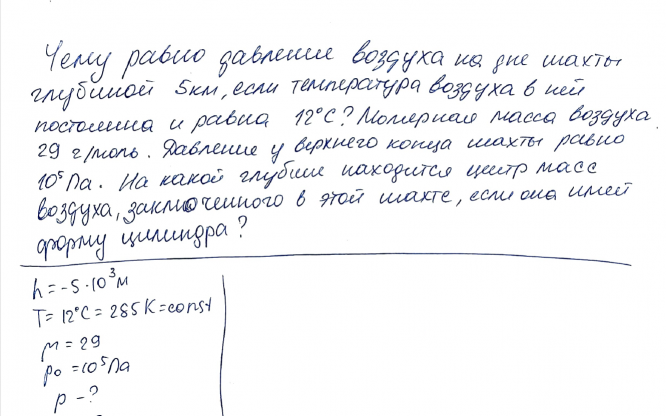 Чему равно давление воздуха на дне шахты
глубиной 5км, если температура воздуха в ней
постоянна и равна 12°C? Молярная масса воздуха
29 г/моль. Давление у верхнего конца шахты равно
10⁵Па. На какой глубине находится центр масс
воздуха, заключенного в этой шахте, если она имеет
форму цилиндра?
h = -5·10³м
T = 12°C = 285K = const
μ = 29
p₀ = 10⁵Па
p - ?